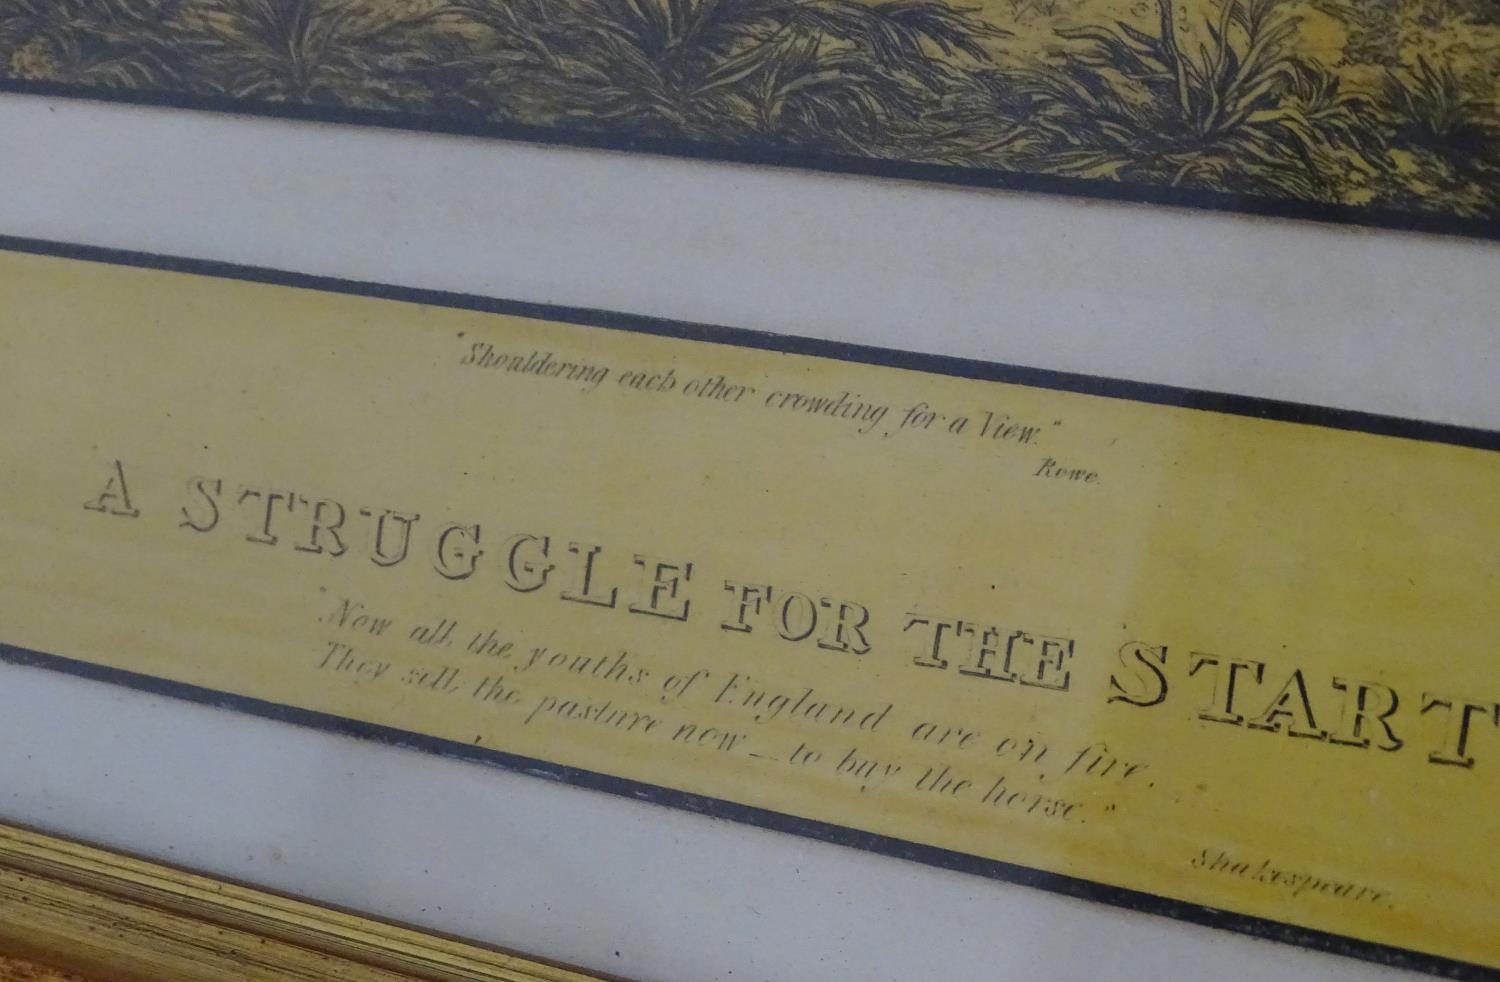 "Shouldering each other crowding for a View."
Rowe.
A STRUGGLE FOR THE START
"Now all the youths of England are on fire.
They sell the pasture now — to buy the horse."
Shakespeare.